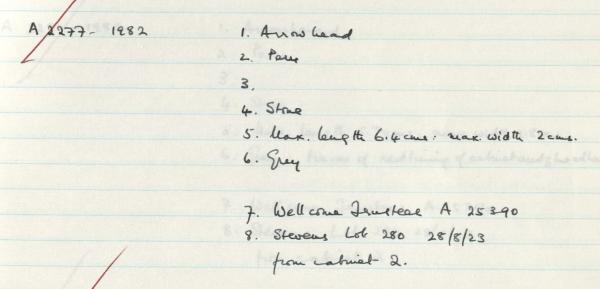 A 2277- 1982
1. Arrowhead
2. Peru
3.
4. Stone
5. Max. length 6.4cms. max. width 2cms.
6. Grey
7. Wellcome Trustees A 25390
8. Stevens Lot 280 28/8/23
from cabinet 2.